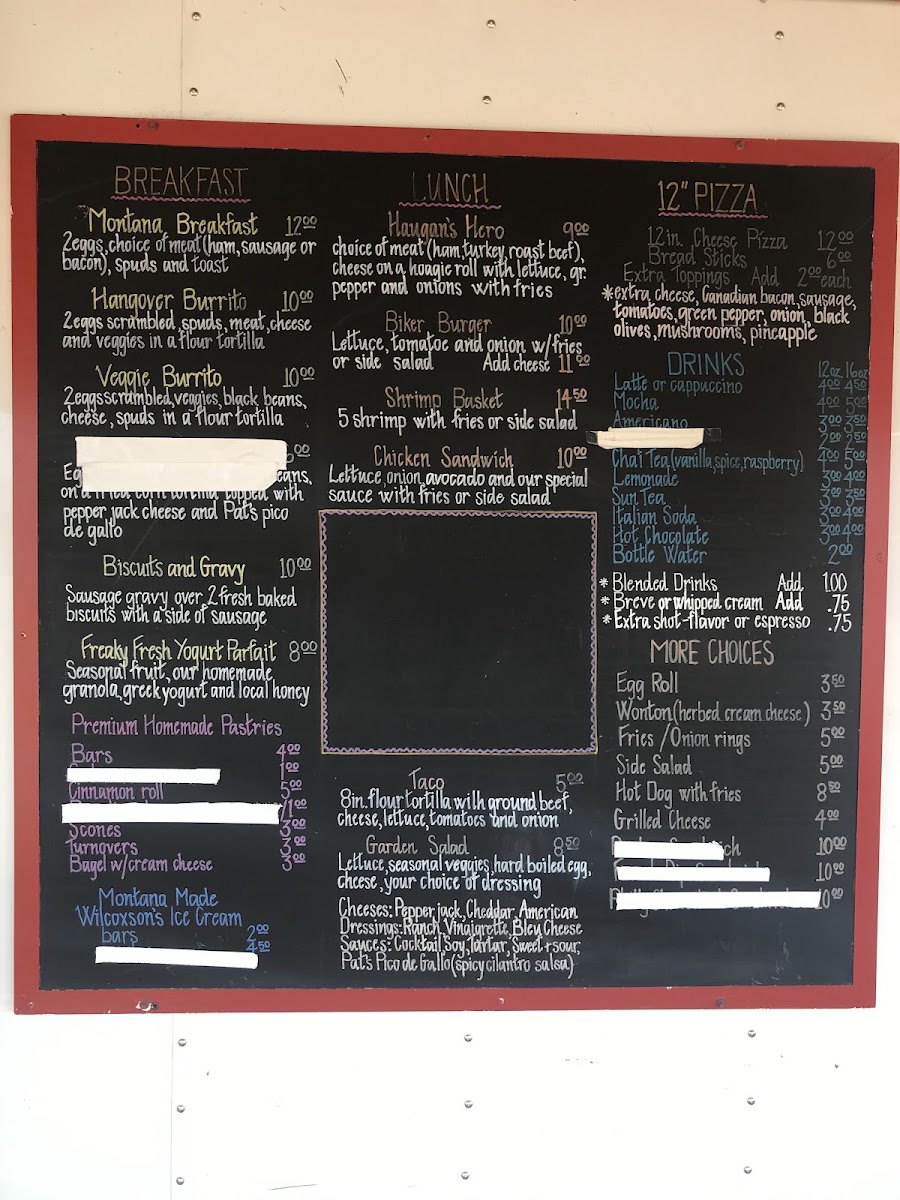 BREAKFAST
Montana Breakfast 12.00
2eggs, choice of meat (ham, sausage or
bacon), spuds and toast
Hangover Burrito 10.00
2eggs scrambled, spuds, meat, cheese
and veggies in a flour tortilla
Veggie Burrito 10.00
2eggs scrambled, veggies, black beans,
cheese, spuds in a flour tortilla
with
pepper jack cheese and Pat's pico
de gallo
Biscuits and Gravy 10.00
Sausage gravy over 2 fresh baked
biscuits with a side of sausage
Freaky Fresh Yogurt Parfait 8.00
Seasonal fruit, our homemade
granola, greek yogurt and local honey
Premium Homemade Pastries
Bars 4.00
1.00
Cinnamon roll 5.00
/1.00
Scones 3.00
Turnovers 3.00
Bagel w/cream cheese 3.00
Montana Made
Wilcoxson's Ice Cream
bars 2.00
4.50
LUNCH
Haugan's Hero 9.00
choice of meat (ham, turkey, roast beef),
cheese on a hoagie roll with lettuce, gr.
pepper and onions with fries
Biker Burger 10.00
Lettuce, tomatoe and onion w/fries
or side salad Add cheese 11.00
Shrimp Basket 14.50
5 shrimp with fries or side salad
Chicken Sandwich 10.00
Lettuce, onion, avocado and our special
sauce with fries or side salad
Taco 5.00
8in. flour tortilla with ground beef,
cheese, lettuce, tomatoes and onion
Garden Salad 8.50
Lettuce, seasonal veggies, hard boiled egg,
cheese, your choice of dressing
Cheeses: Pepper jack, Cheddar, American
Dressings: Ranch, Vinaigrette, Bleu Cheese
Sauces: Cocktail, Soy, Tartar, Sweet+sour,
Pat's Pico de Gallo (spicy cilantro salsa)
12" PIZZA
12in. Cheese Pizza 12.00
Bread Sticks 6.00
Extra Toppings Add 2.00 each
*extra cheese, Canadian bacon, sausage,
tomatoes, green pepper, onion, black
olives, mushrooms, pineapple
DRINKS 12oz. 16oz
Latte or cappuccino 4.00 4.50
Mocha 4.00 5.00
Americano 3.00 3.50
2.00 2.50
Chai Tea (vanilla, spice, raspberry) 4.00 5.00
Lemonade 3.00 4.00
Sun Tea 3.00 3.50
Italian Soda 3.00 4.00
Hot Chocolate 3.00 4.00
Bottle Water 2.00
* Blended Drinks Add 1.00
* Breve or whipped cream Add .75
* Extra shot-flavor or espresso .75
MORE CHOICES
Egg Roll 3.50
Wonton (herbed cream cheese) 3.50
Fries /Onion rings 5.00
Side Salad 5.00
Hot Dog with fries 8.50
Grilled Cheese 4.00
10.00
10.00
10.00